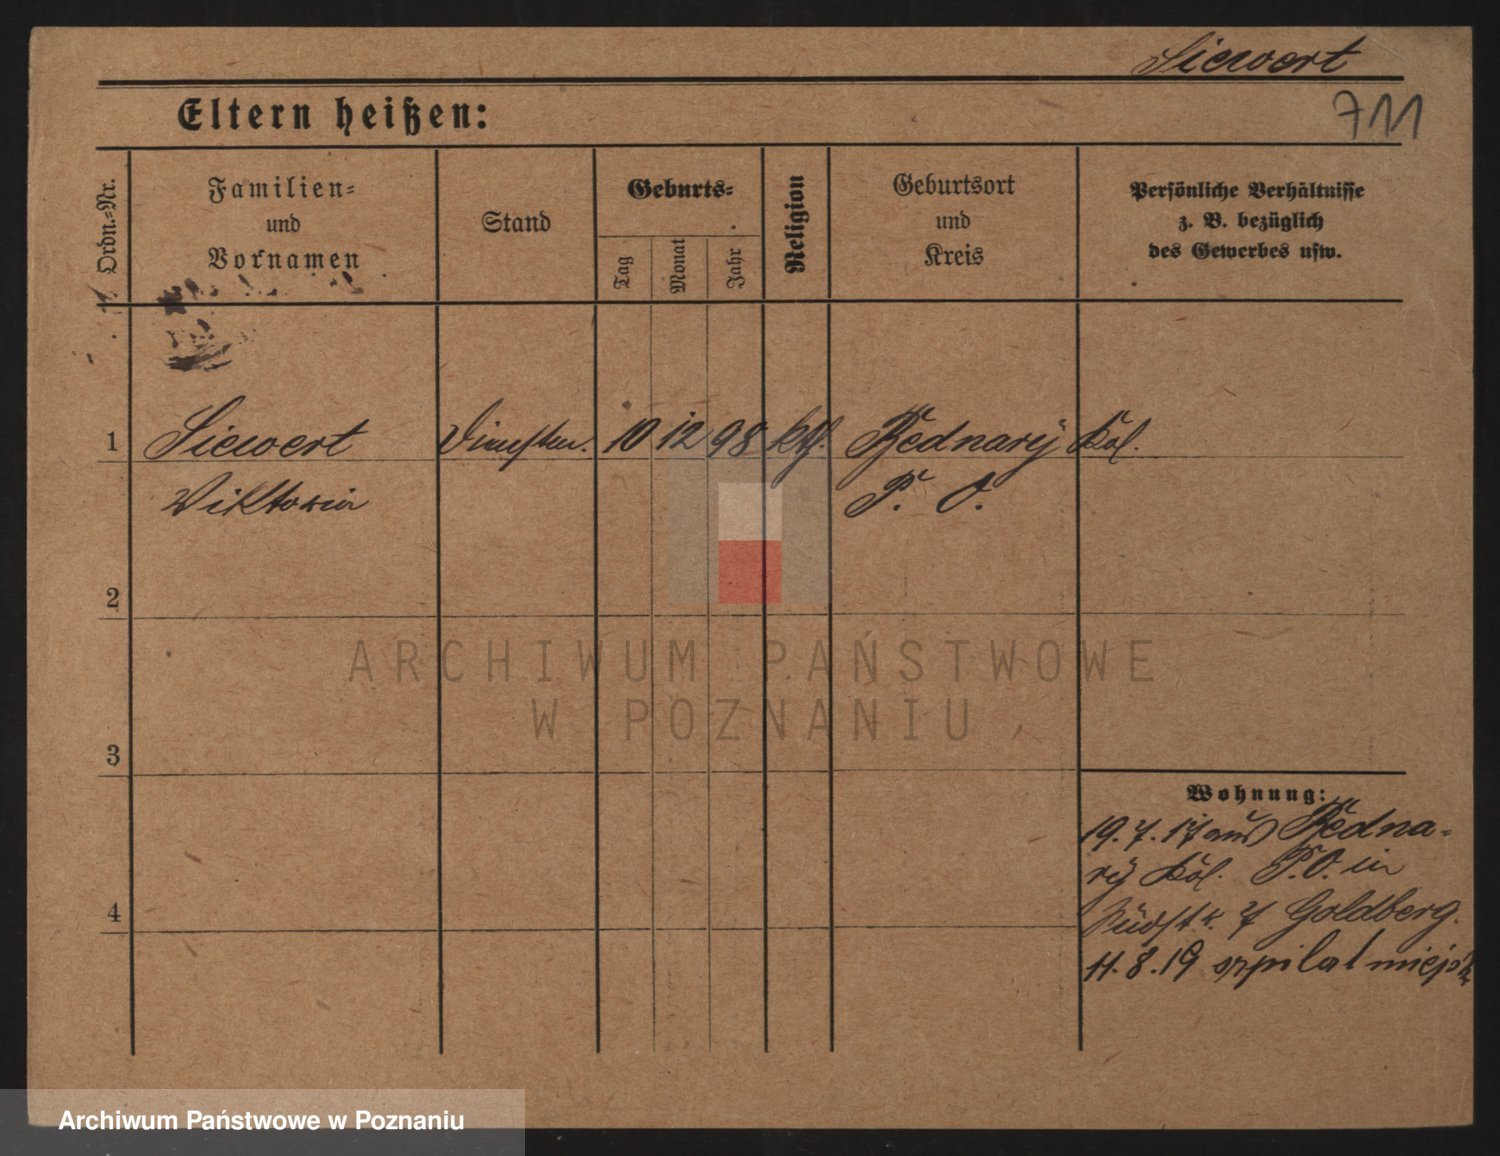 Siewert
711
Eltern heißen:
Ordn.=Nr.
Familien=
und
Vornamen
Stand
Geburts=
Tag
Monat
Jahr
Religion
Geburtsort
und
Kreis
Persönliche Verhältnisse
z. B. bezüglich
des Gewerbes usw.
1 Siewert 10 12 98 kth. Bednary Kol.
Viktoria P. O.
2
3
Wohnung:
19.7.17 aus Bedna=
ry Kol. P.O. in
7 Goldberg.
4
11.8.19 szpital miejsk
ARCHIWUM PAŃSTWOWE
W POZNANIU
Archiwum Państwowe w Poznaniu